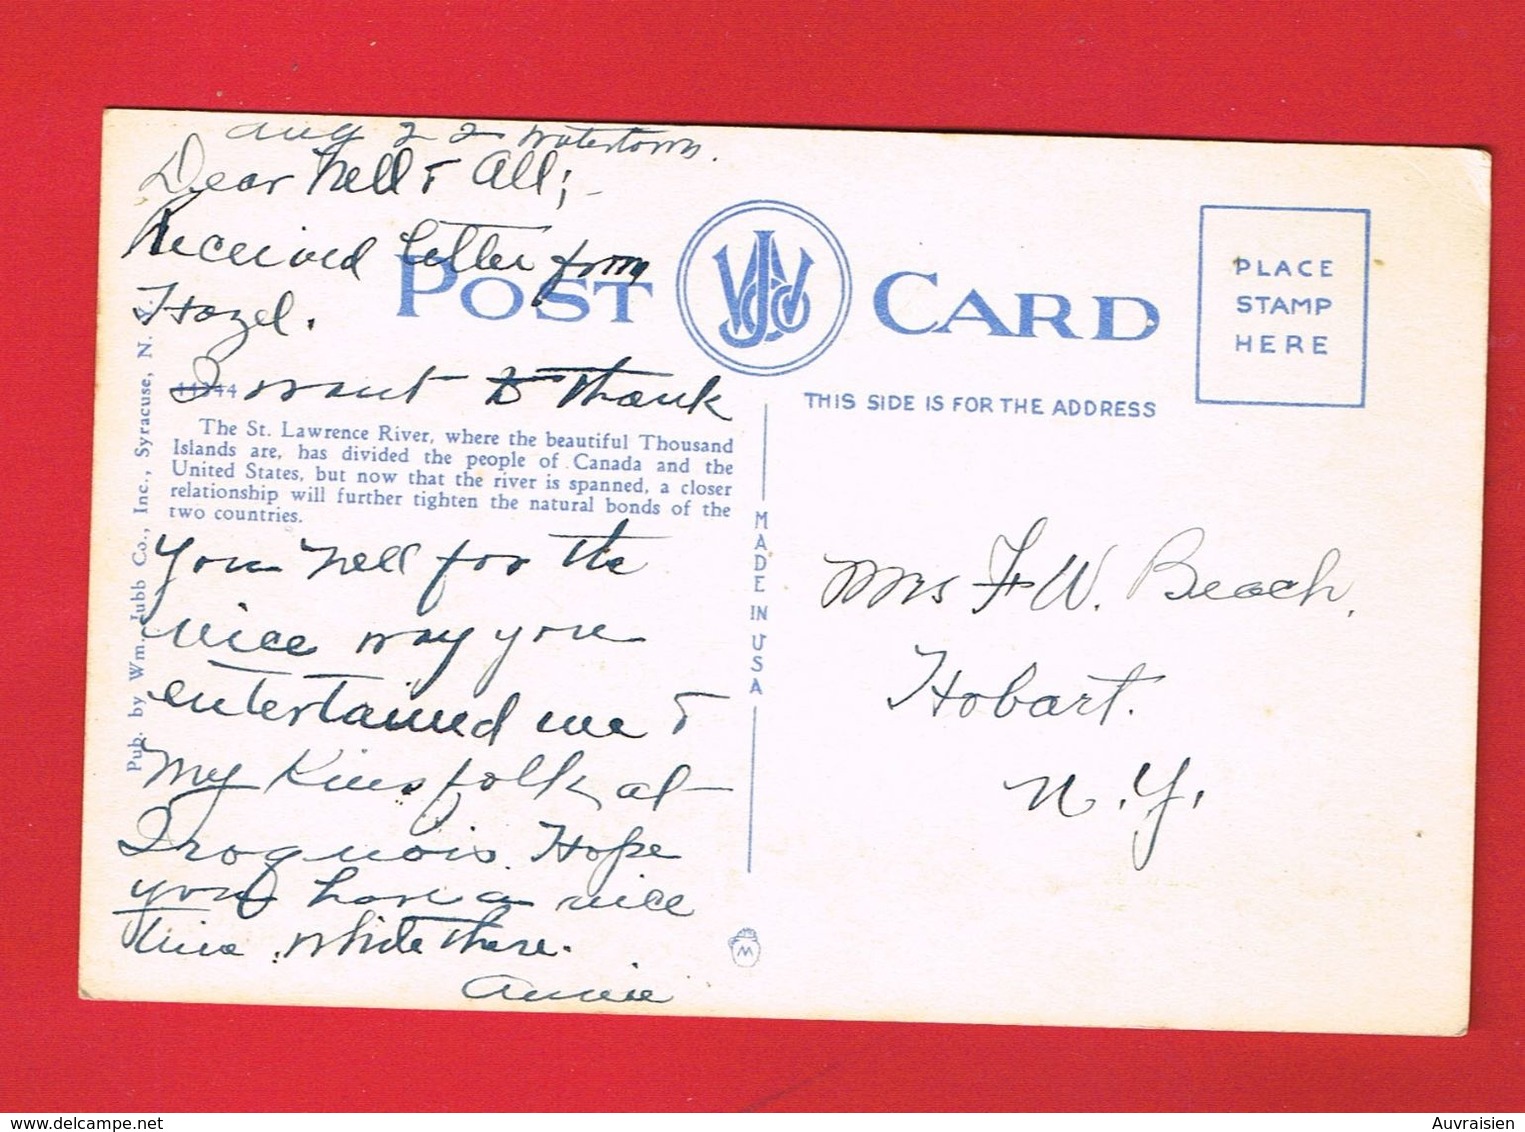 Aug 22 Watertown.
Dear Nell & All;
Received letter from
Hazel.
I want to Thank
44344
The St. Lawrence River, where the beautiful Thousand
Islands are, has divided the people of Canada and the
United States, but now that the river is spanned, a closer
relationship will further tighten the natural bonds of the
two countries.
you Nell for the
nice way you
entertained me &
My Kinsfolk at
Iroquois. Hope
you have a nice
time while there.
Annie
Pub. by Wm. Jubb Co., Inc., Syracuse, N. Y.
POST CARD
WJCO
THIS SIDE IS FOR THE ADDRESS
PLACE
STAMP
HERE
MADE IN USA
M
Mrs F. W. Beach,
Hobart.
N.Y.
Auvraisien